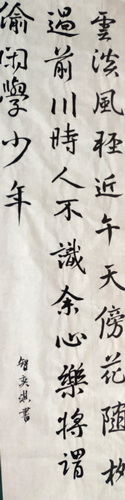 雲淡風輕近午天傍花隨柳
過前川時人不識余心樂將謂
偷閑學少年
書